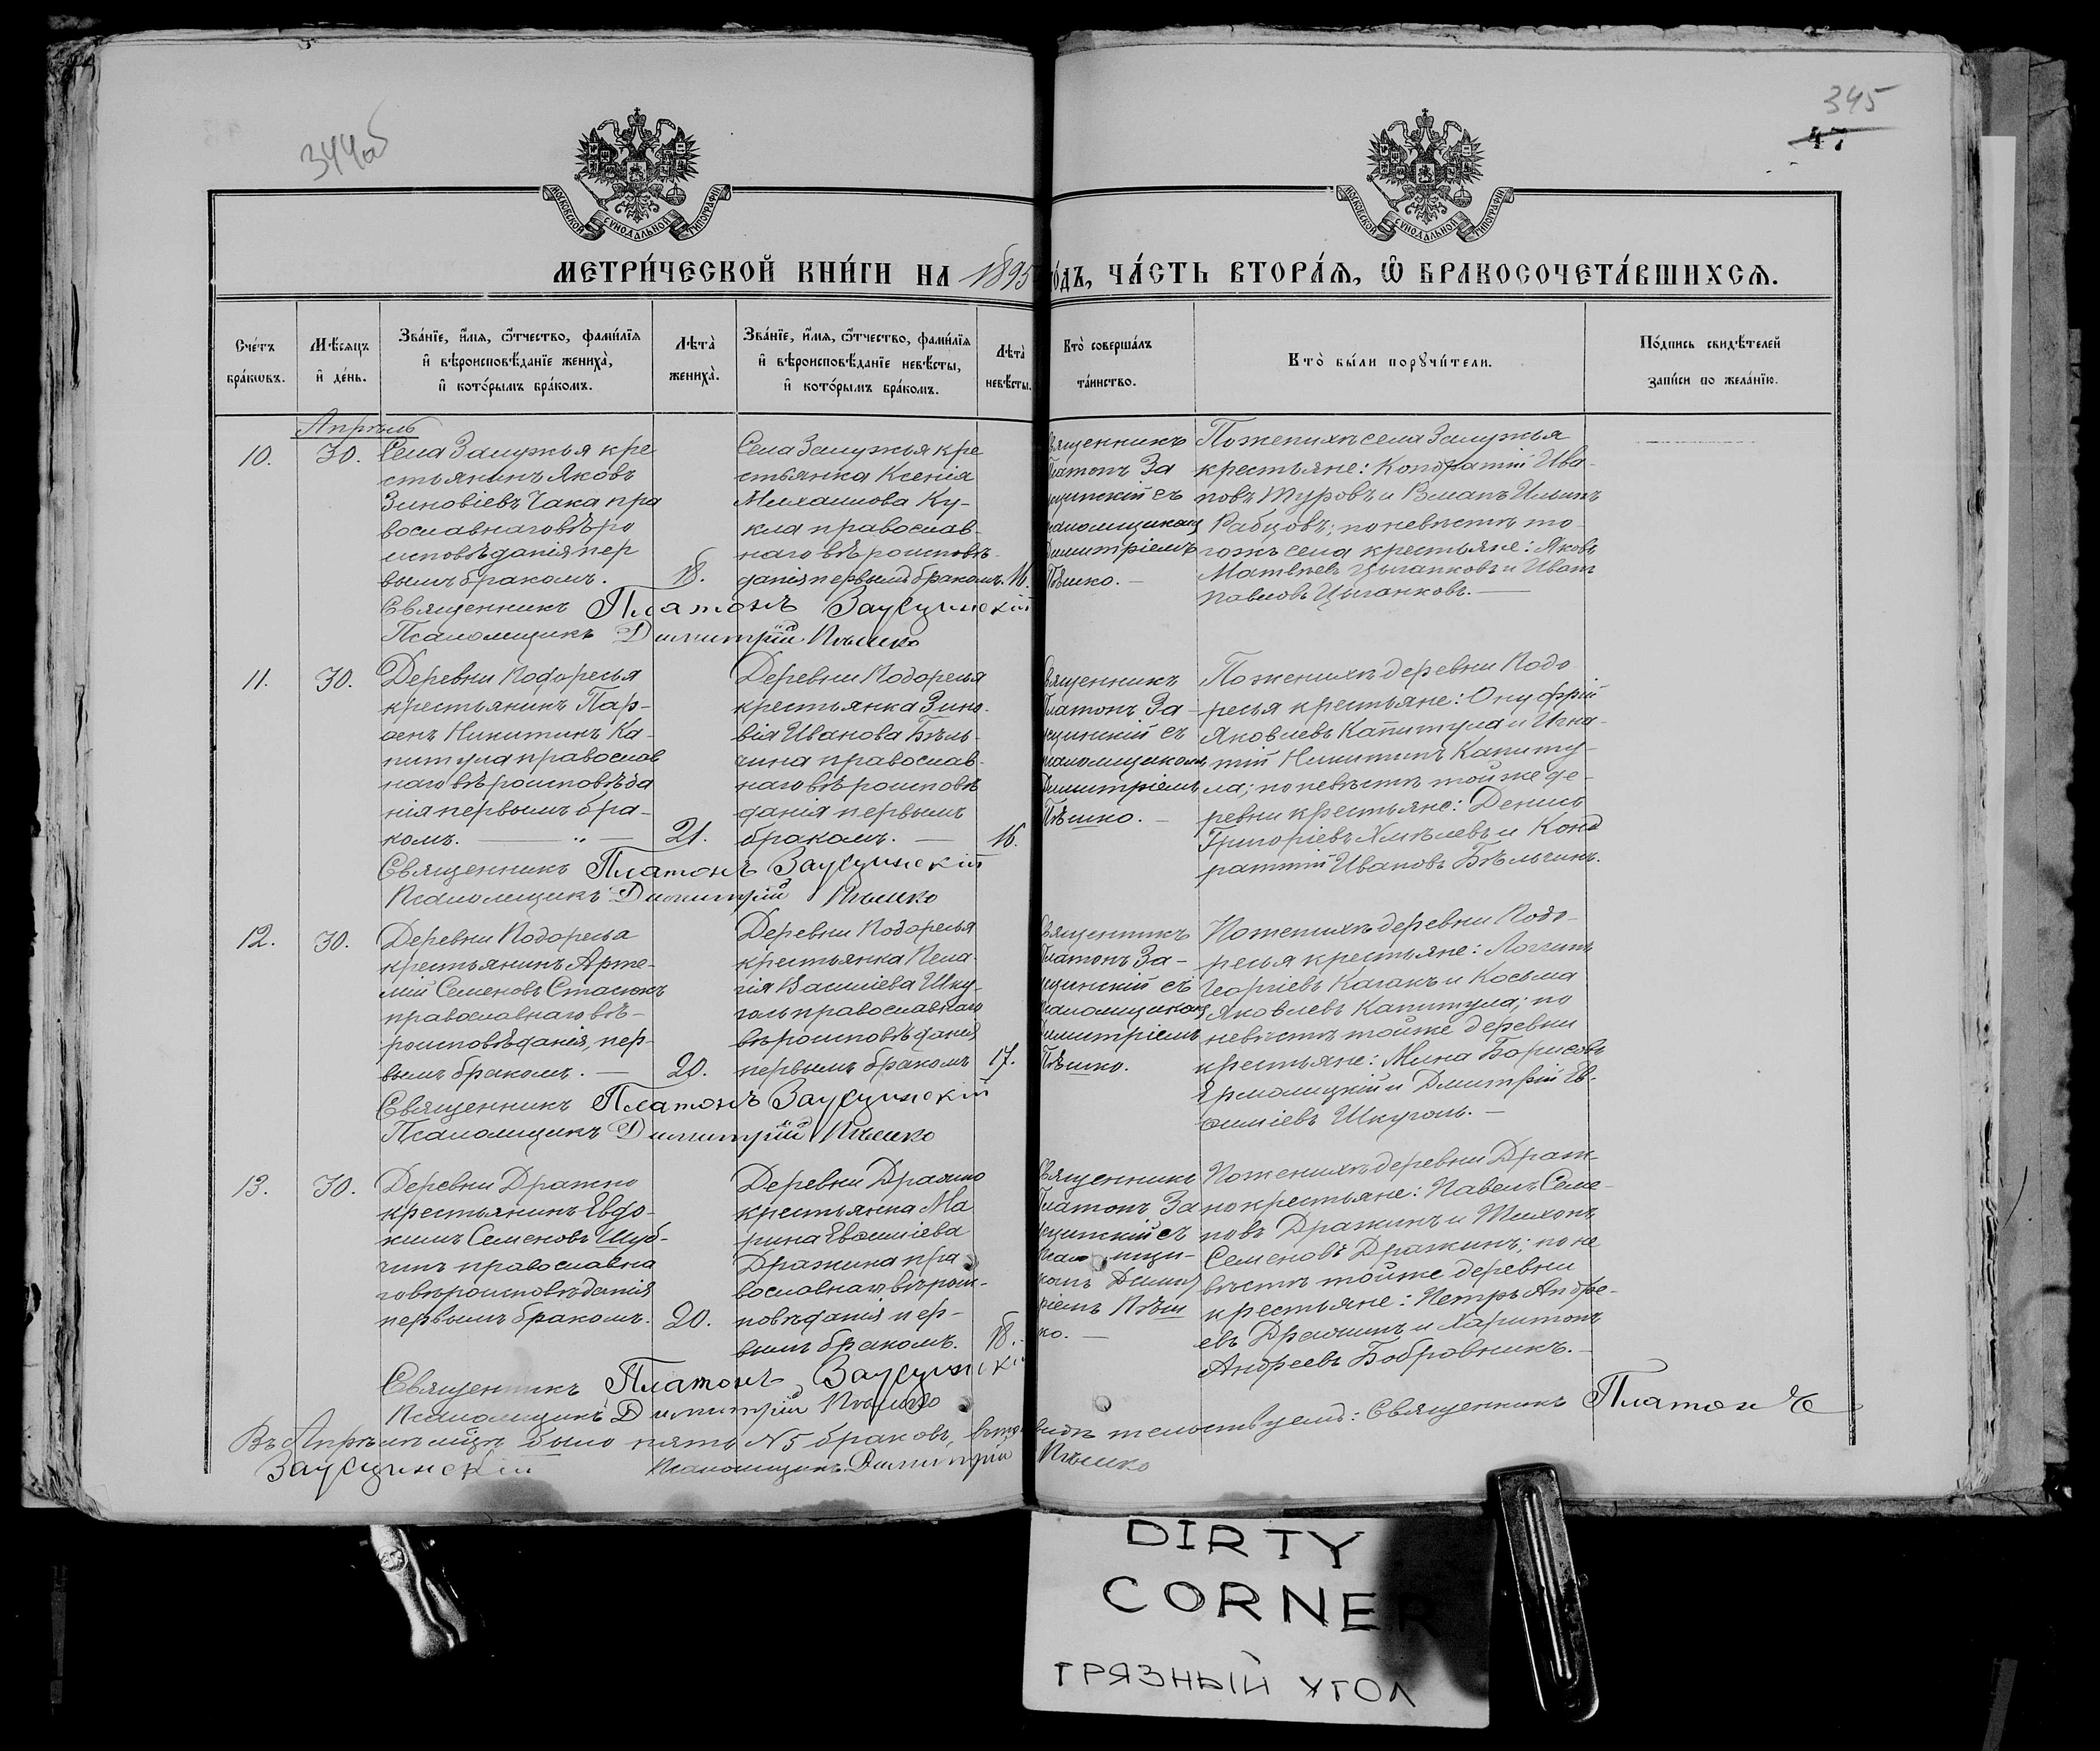 344об
345
47
МОСКОВСКОЙ СУНОДАЛЬНОЙ ТИПОГРАФИИ
МОСКОВСКОЙ СУНОДАЛЬНОЙ ТИПОГРАФИИ
МЕТРИ́ЧЕСКОЙ КНИ́ГИ НА 1895
О́ДЪ, ЧА́СТЬ ВТОРА́Ѧ, Ѡ҆ БРАКОСОЧЕТА́ВШИХСѦ.
Сче́тъ
бра́кѡвъ.
Мѣ́сѧцъ
и҆ де́нь.
Зва́нїе, и҆́мѧ, ѻ҆́тчество, фами́лїѧ
и҆ вѣроисповѣ́данїе жениха̀,
и҆ кото́рымъ бра́комъ.
Лѣта̀
жениха̀.
Зва́нїе, и҆́мѧ, ѻ҆́тчество, фами́лїѧ
и҆ вѣроисповѣ́данїе невѣ́сты,
и҆ кото́рымъ бра́комъ.
Лѣта̀
невѣ́сты.
Кто̀ соверша́лъ
та́инство.
Кто̀ бы́ли порꙋчи́тели.
По́дпись свидѣ́телей
за́писи по жела́нїю.
Апрѣль
10.
30.
Села Залужья кре
стьянинъ Яковъ
Зиновіевъ Чака пра
вославнаго вѣро
исповѣданія пер
вымъ бракомъ.
18.
Села Залужья кре
стьянка Ксенія
Михаилова Ку-
кла православ-
наго вѣроисповѣ-
данія первымъ бракомъ.
16.
вященникъ
Платонъ За
ущинскій съ
саломщикомъ
Димитріемъ
Пѣшко. —
По женихѣ села Залужья
крестьяне: Кондратій Ива-
новъ Туровъ и Романъ Ильинъ
Рабцовъ; по невѣстѣ то-
гожъ села крестьяне: Яковъ
Матвѣевъ Цыганковъ и Иванъ
Павловъ Цыганковъ. —
Священникъ Платонъ Заущинскій
Псаломщикъ Димитрій Пѣшко
11.
30.
Деревни Подоресья
крестьянинъ Пар-
фенъ Никитинъ Ка-
питула православ
наго вѣроисповѣда
нія первымъ бра-
комъ. —
21.
Деревни Подоресья
крестьянка Зино-
вія Иванова Бѣль-
чина православ-
наго вѣроисповѣ
данія первымъ
бракомъ. —
16.
вященникъ
Платонъ За-
ущинскій съ
саломщикомъ
Димитріемъ
Пѣшко. —
По женихѣ деревни Подо
ресья крестьяне: Онуфрій
Яковлевъ Капитула и Игна-
тій Никитинъ Капиту-
ла; по невѣстѣ той же де-
ревни крестьяне: Денисъ
Григоріевъ Хмѣлевъ и Конд
ратій Ивановъ Бѣльчинъ.
Священникъ Платонъ Заущинскій
Псаломщикъ Димитрій Пѣшко
12.
30.
Деревни Подоресья
крестьянинъ Арте-
мій Семеновъ Стасюкъ
православнаго вѣ-
роисповѣданія, пер-
вымъ бракомъ. —
20.
Деревни Подоресья
крестьянка Пела-
гія Василіева Шку-
голь православнаго
вѣроисповѣданія
первымъ бракомъ
17.
вященникъ
Платонъ За-
ущинскій съ
саломщикомъ
Димитріемъ
Пѣшко.
По женихѣ деревни Подо-
ресья крестьяне: Логгинъ
Георгіевъ Каганъ и Косьма
Яковлевъ Капитула; по
невѣстѣ тойже деревни
крестьяне: Мина Борисовъ
Ермолицкій и Дмитрій Ев-
фиміевъ Шкуголь. —
Священникъ Платонъ Заущинскій
Псаломщикъ Димитрій Пѣшко
13.
30.
Деревни Дражно
крестьянинъ Евдо-
кимъ Семеновъ Шуб-
чинъ православна
го вѣроисповѣданія
первымъ бракомъ.
20.
Деревни Дражно
крестьянка Ма
рина Евфиміева
Дражина пра
вославнаго вѣроис-
повѣданія пер-
вымъ бракомъ.
18.
вященникъ
Платонъ За
ущинскій съ
комъ Димит
ріемъ Пѣш
ко. —
По женихѣ деревни Драж-
но крестьяне: Павелъ Семе-
новъ Дражинъ и Тихонъ
Семеновъ Дражинъ; по не
вѣстѣ тойже деревни
крестьяне: Петръ Андре-
евъ Дражинъ и Харитонъ
Андреевъ Бобровникъ. —
Священникъ Платонъ Заущинскій
Псаломщикъ Димитрій Пѣшко
Въ Апрѣлѣ мѣцѣ было пять №5 браковъ, въ томъ свидѣтельствуемъ: Священникъ Платонъ
Заущинскій Псаломщикъ Димитрій Пѣшко
DIRTY
CORNER
ГРЯЗНЫЙ УГОЛ